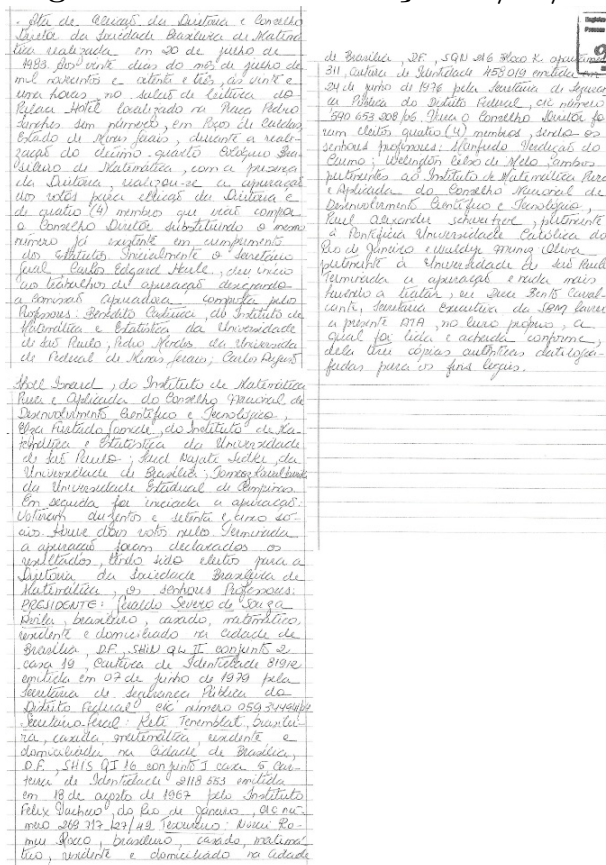 . Ata de eleição da Diretoria e Conselho
Diretor da Sociedade Brasileira de Matemá
tica realizada em 20 de julho de
1983. Aos vinte dias do mês de julho de
mil novecentos e oitenta e três, às vinte e
uma horas, no salão de leitura do
Palace Hotel localizado na Praça Pedro
Sanches sem número, em Poços de Caldas,
Estado de Minas Gerais, durante a reali-
zação do décimo quarto Colóquio Bra
sileiro de Matemática, com a presença
da Diretoria, realizou-se a apuração
dos votos para eleição da Diretoria e
de quatro (4) membros que irão compor
o Conselho Diretor substituindo o mesmo
número já existente em cumprimento
dos Estatutos. Inicialmente o Secretário
Geral, Carlos Edgard Harle, deu início
aos trabalhos de apuração designando
a comissão apuradora composta pelos
Professores: Benedito Castrucci, do Instituto de
Matemática e Estatística da Universidade
de São Paulo; Pedro Mendes da Universida
de Federal de Minas Gerais; Carlos Augusto
Sholl Isnard, do Instituto de Matemática
Pura e Aplicada do Conselho Nacional de
Desenvolvimento Científico e Tecnológico,
Elza Furtado Gomide, do Instituto de Ma-
temática e Estatística da Universidade
de São Paulo; Said Najati Sidki, da
Universidade de Brasília;
da Universidade Estadual de Campinas.
Em seguida foi iniciada a apuração.
Votaram duzentos e setenta e cinco só-
cios. Houve dois votos nulos. Terminada
a apuração foram declarados os
resultados, tendo sido eleitos para a
Diretoria da Sociedade Brasileira de
Matemática, os senhores Professores:
PRESIDENTE: Geraldo Severo de Souza
Ávila, brasileiro, casado, matemático,
residente e domiciliado na cidade de
Brasília, D.F., SHIN QL II conjunto 2
casa 19, Carteira de Identidade
emitida em 07 de junho de 1979 pela
Secretaria de Segurança Pública do
Distrito Federal, cic número
Secretário-Geral: Keti Tenenblat, brasilei-
ra, casada, matemática, residente e
domiciliada na Cidade de Brasília,
D.F., SHIS QI 16 conjunto I casa 5, Car-
teira de Identidade 2118553 emitida
em 18 de agosto de 1967 pelo Instituto
Felix Pacheco, do Rio de Janeiro, cic nú-
mero 269 717 127/49. Tesoureiro: Norai Ro-
meu Rocco, brasileiro, casado, matemá
tico, residente e domiciliado na cidade
de Brasília, D.F., SQN 216 Bloco K. apartamento
311, Carteira de Identidade 458019 emitida em
24 de junho de 1976 pela Secretaria de Seguran
ça Pública do Distrito Federal, cic número
590 653 208/06. Para o Conselho Diretor fo
ram eleitos quatro (4) membros, sendo os
senhores professores: Manfredo Perdigão do
Carmo; Welington Celso de Melo, ambos
pertencentes ao Instituto de Matemática Pura
e Aplicada do Conselho Nacional de
Desenvolvimento Científico e Tecnológico,
Paul Alexander Schweitzer, pertencente
à Pontifícia Universidade Católica do
Rio de Janeiro e Waldyr Muniz Oliva
pertencente à Universidade de São Paulo.
Terminada a apuração e nada mais
havendo a tratar, eu Bento Caval-
cante, Secretária Executiva da SBM lavrei
a presente ATA, no livro próprio, a
qual foi lida e achada conforme,
dela tirei cópias autênticas datilogra-
fadas para os fins legais.